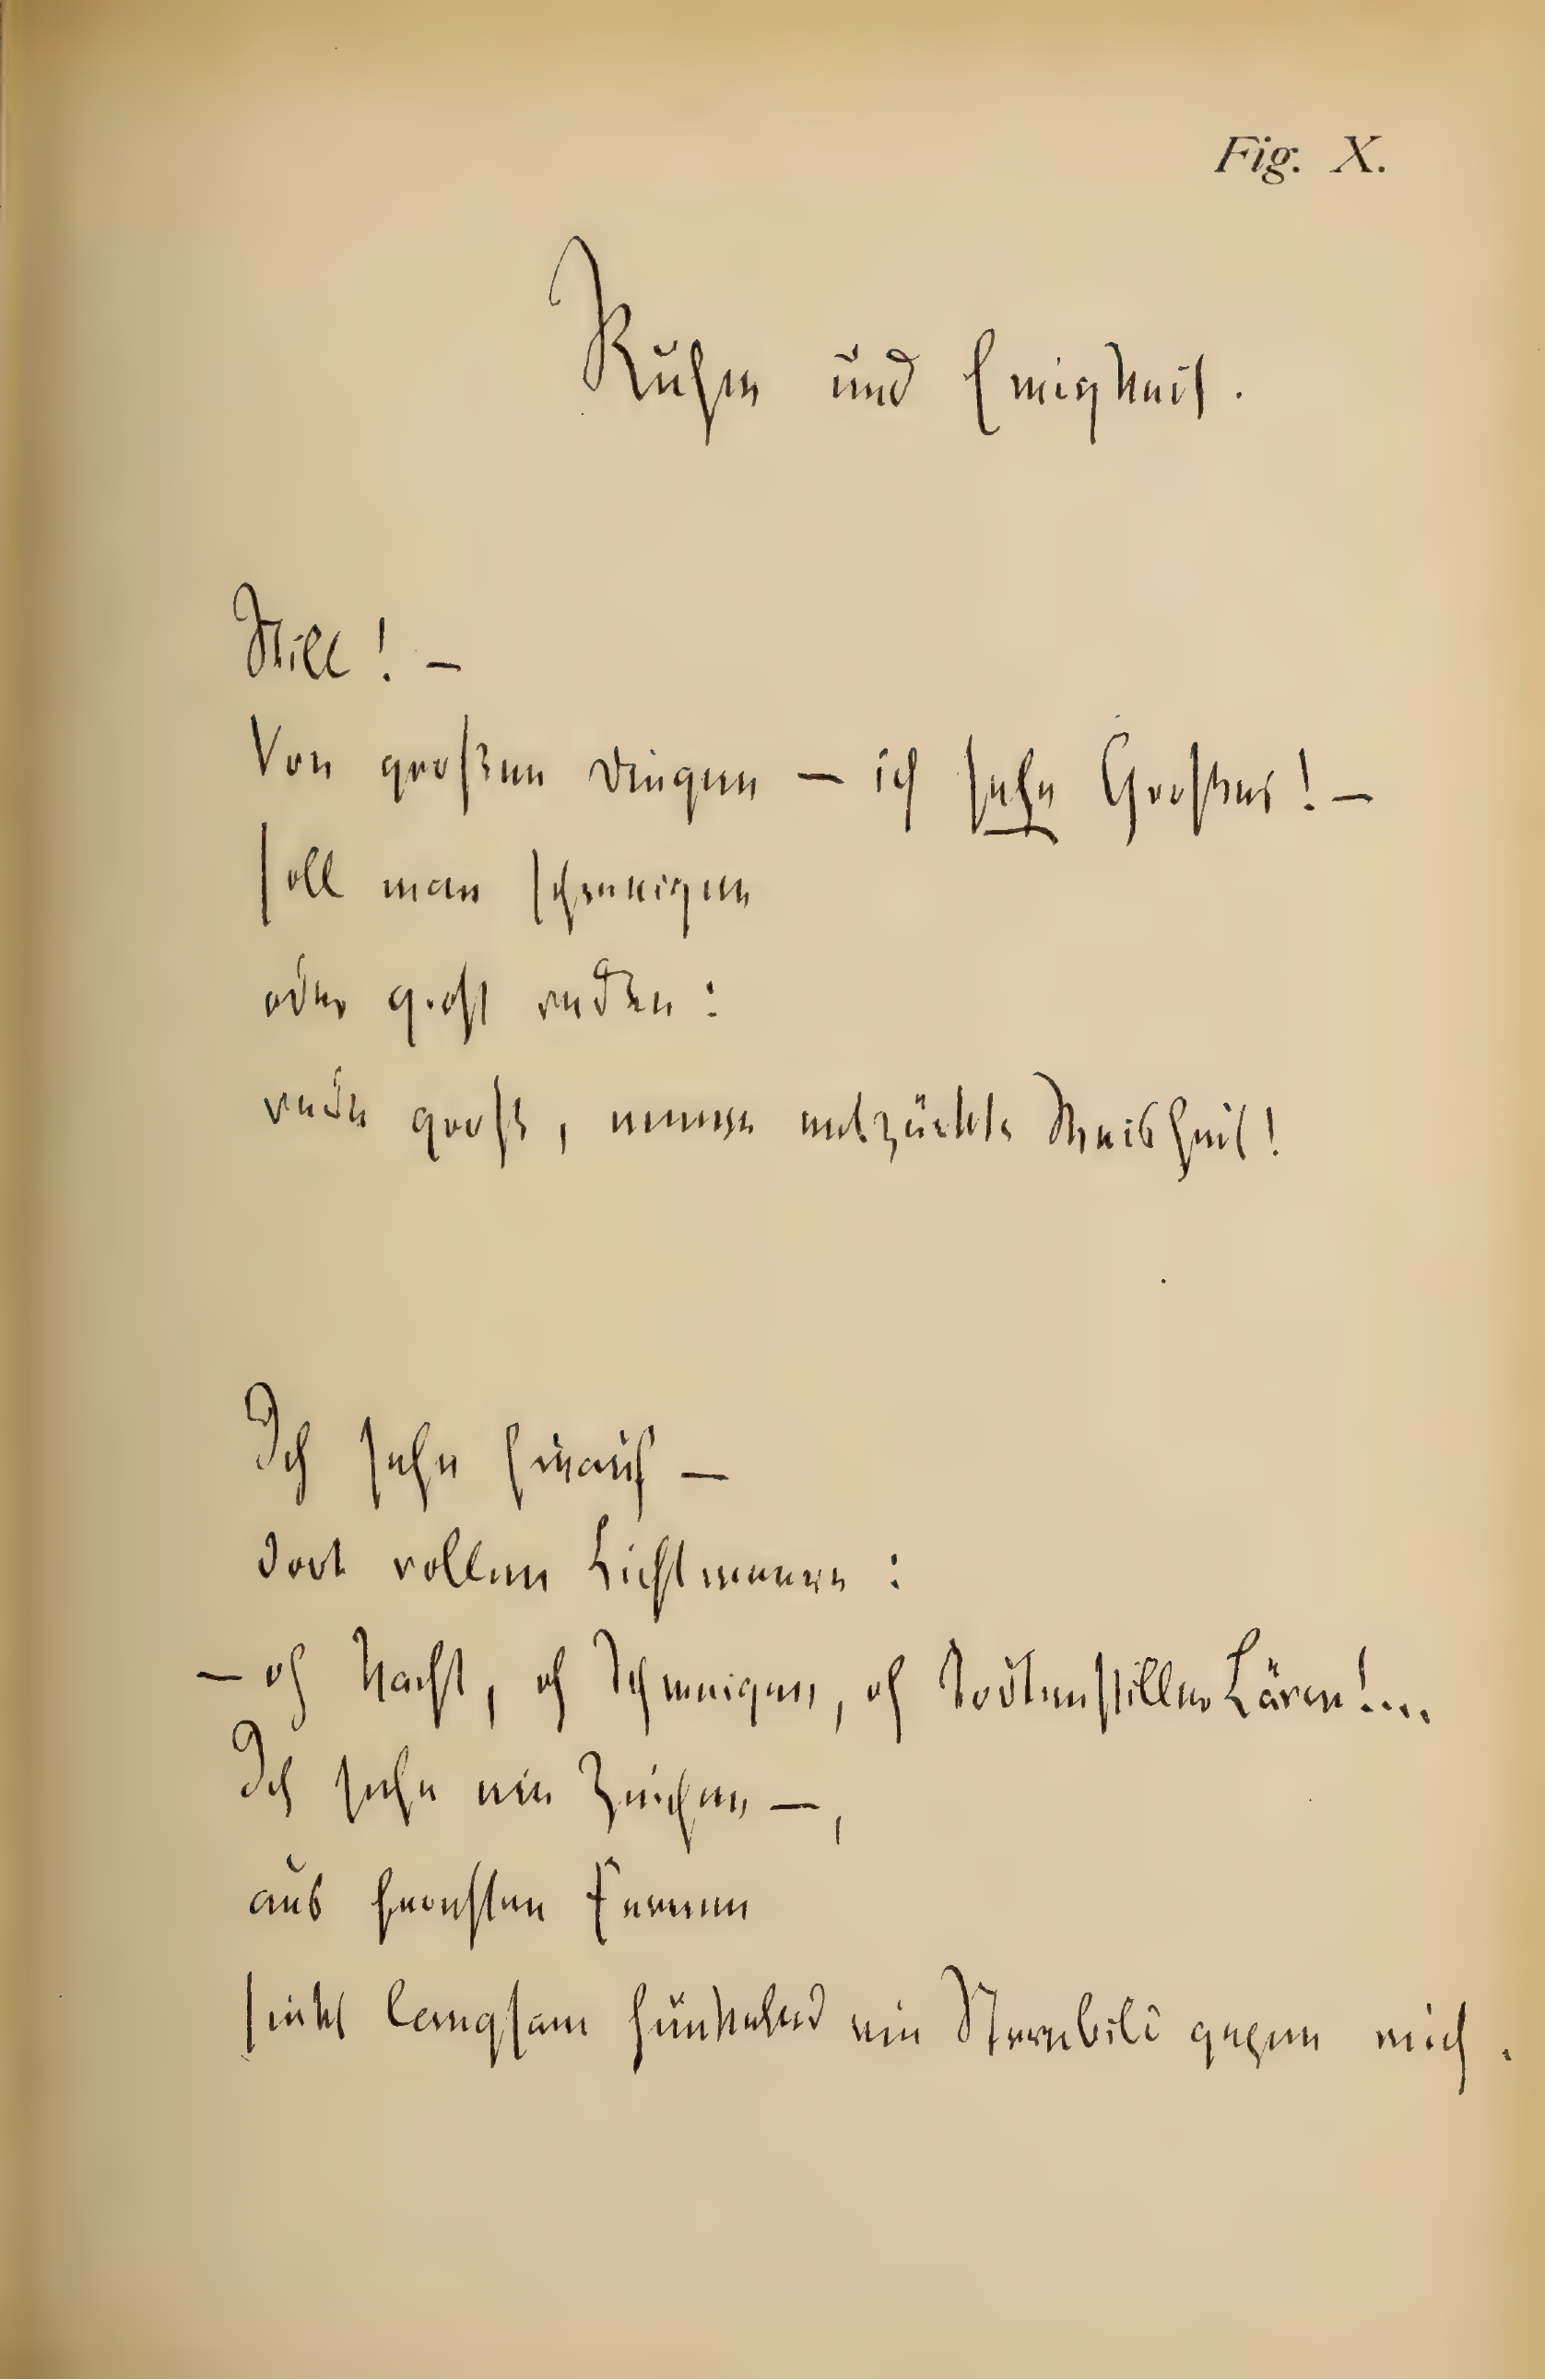 Fig. X.
Ruhm und Ewigkeit.
Still! –
Von großen Dingen – ich sehe Großes! –
soll man schweigen
oder groß reden:
rede groß, meine entzückte Weisheit!
Ich sehe hinauf –
dort rollen Lichtmeere:
– oh Nacht, oh Schweigen, oh todtenstiller Lärm!...
Ich sehe ein Zeichen –,
aus fernsten Fernen
sinkt langsam funkelnd ein Sternbild gegen mich.